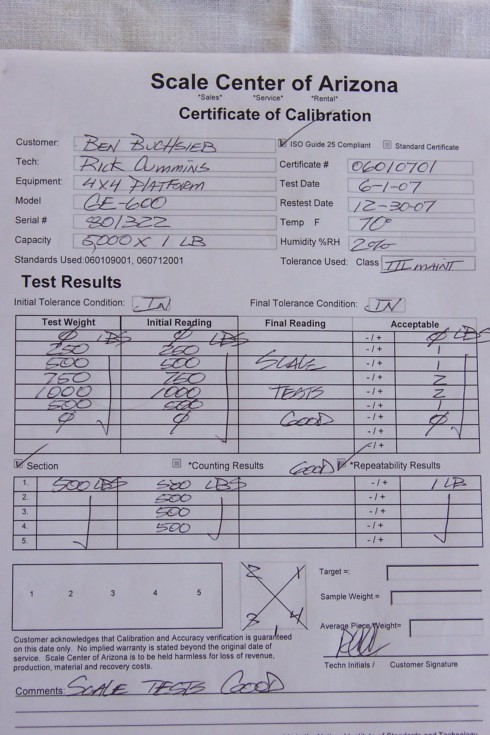 Scale Center of Arizona
"Sales" "Service" "Rental"
Certificate of Calibration
Customer: BEN BUCHSIEB
ISO Guide 25 Compliant Standard Certificate
Tech: RICK CUMMINS
Certificate # 06010701
Equipment: 4X4 PLATFORM
Test Date 6-1-07
Model GE-600
Restest Date 12-30-07
Serial # 801322
Temp F 70°
Capacity 5,000 X 1 LB
Humidity %RH 2%
Standards Used: 060109001, 060712001
Tolerance Used: Class III MAINT
Test Results
Initial Tolerance Condition: IN Final Tolerance Condition: IN
Test Weight Initial Reading Final Reading Acceptable
0 LBS 0 LBS -/+ 0 LBS
250 250 -/+ 1
500 500 SCALE -/+ 1
750 750 -/+ 2
1000 1000 TESTS -/+ 2
500 500 -/+ 1
0 0 GOOD -/+ 0
-/+
Section *Counting Results GOOD *Repeatability Results
1. 500 LBS 500 LBS -/+ 1 LB
2. 500 -/+
3. 500 -/+
4. 500 -/+
5. -/+
1 2 3 4 5
2 1
3 4
Target =
Sample Weight =
Average Piece Weight=
Customer acknowledges that Calibration and Accuracy verification is guaranteed
on this date only. No implied warranty is stated beyond the original date of
service. Scale Center of Arizona is to be held harmless for loss of revenue,
production, material and recovery costs.
Techn Initials / Customer Signature
Comments: SCALE TESTS GOOD